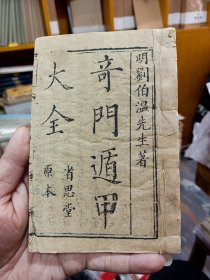 明劉伯温先生著
奇門遁甲
大全
省思堂
原本